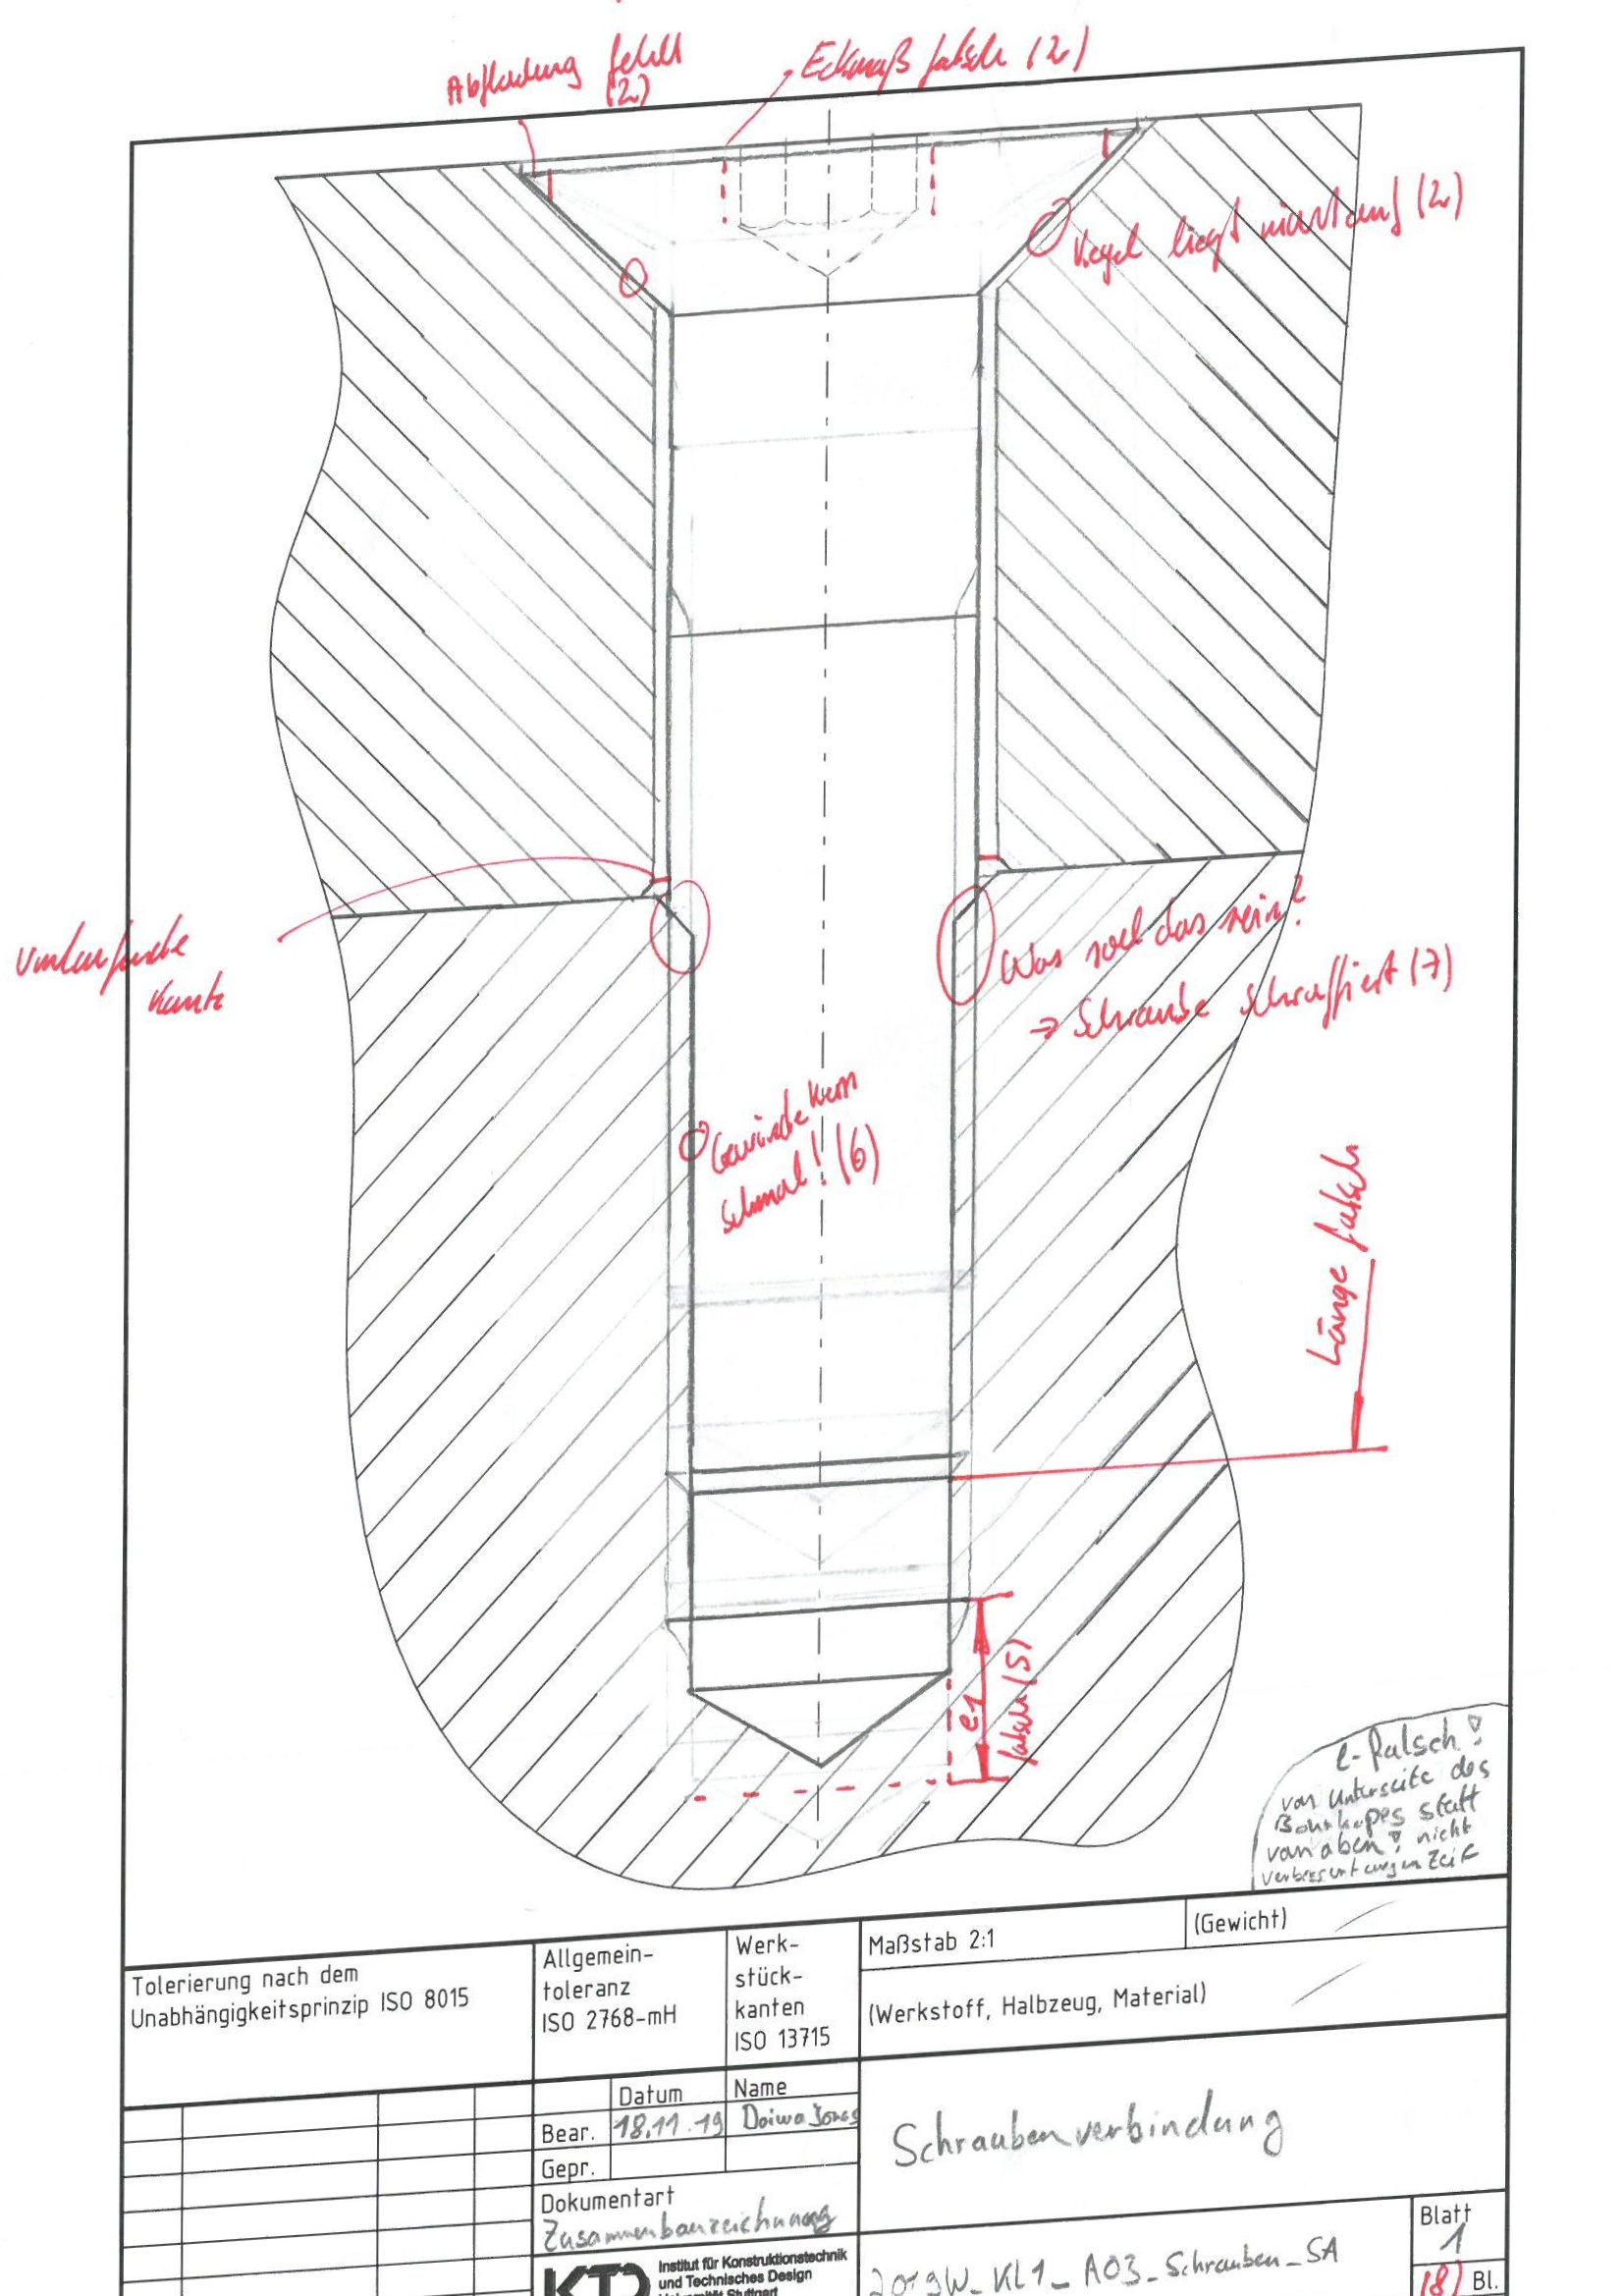 Abflachung fehlt
(2)
Eckmaß falsch (2)
Kegel liegt nicht auf (2)
Umlaufende
Kante
Was soll das sein?
→ Schraube schraffiert (7)
Gewindekern
schmal! (6)
Länge falsch
e1
falsch (5)
l-falsch!
von Unterseite des
Bohrkopes statt
von oben! nicht
verbessert wegen Zeit
Tolerierung nach dem
Unabhängigkeitsprinzip ISO 8015
Allgemein-
toleranz
ISO 2768-mH
Werk-
stück-
kanten
ISO 13715
Maßstab 2:1
(Gewicht)
(Werkstoff, Halbzeug, Material)
Datum
Name
Bear.
18.11.19
Doiwa Jonas
Gepr.
Schraubenverbindung
Dokumentart
Zusammenbauzeichnung
KTD
Institut für Konstruktionstechnik
und Technisches Design
Universität Stuttgart
2019W_KL1_A03_Schrauben_SA
Blatt
1
Bl.